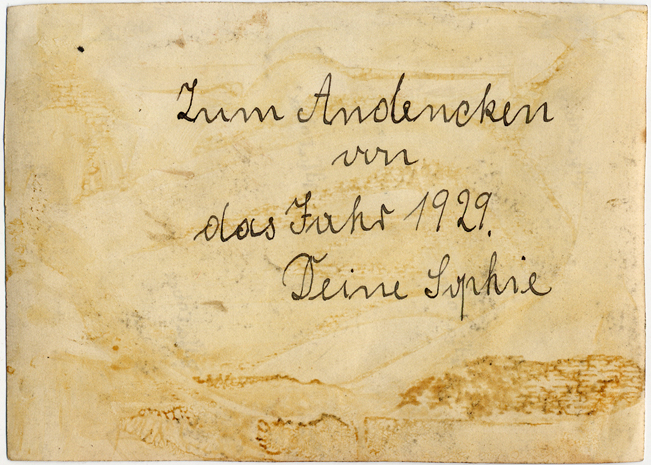 Zum Andencken
von
das Jahr 1929.
Deine Sophie